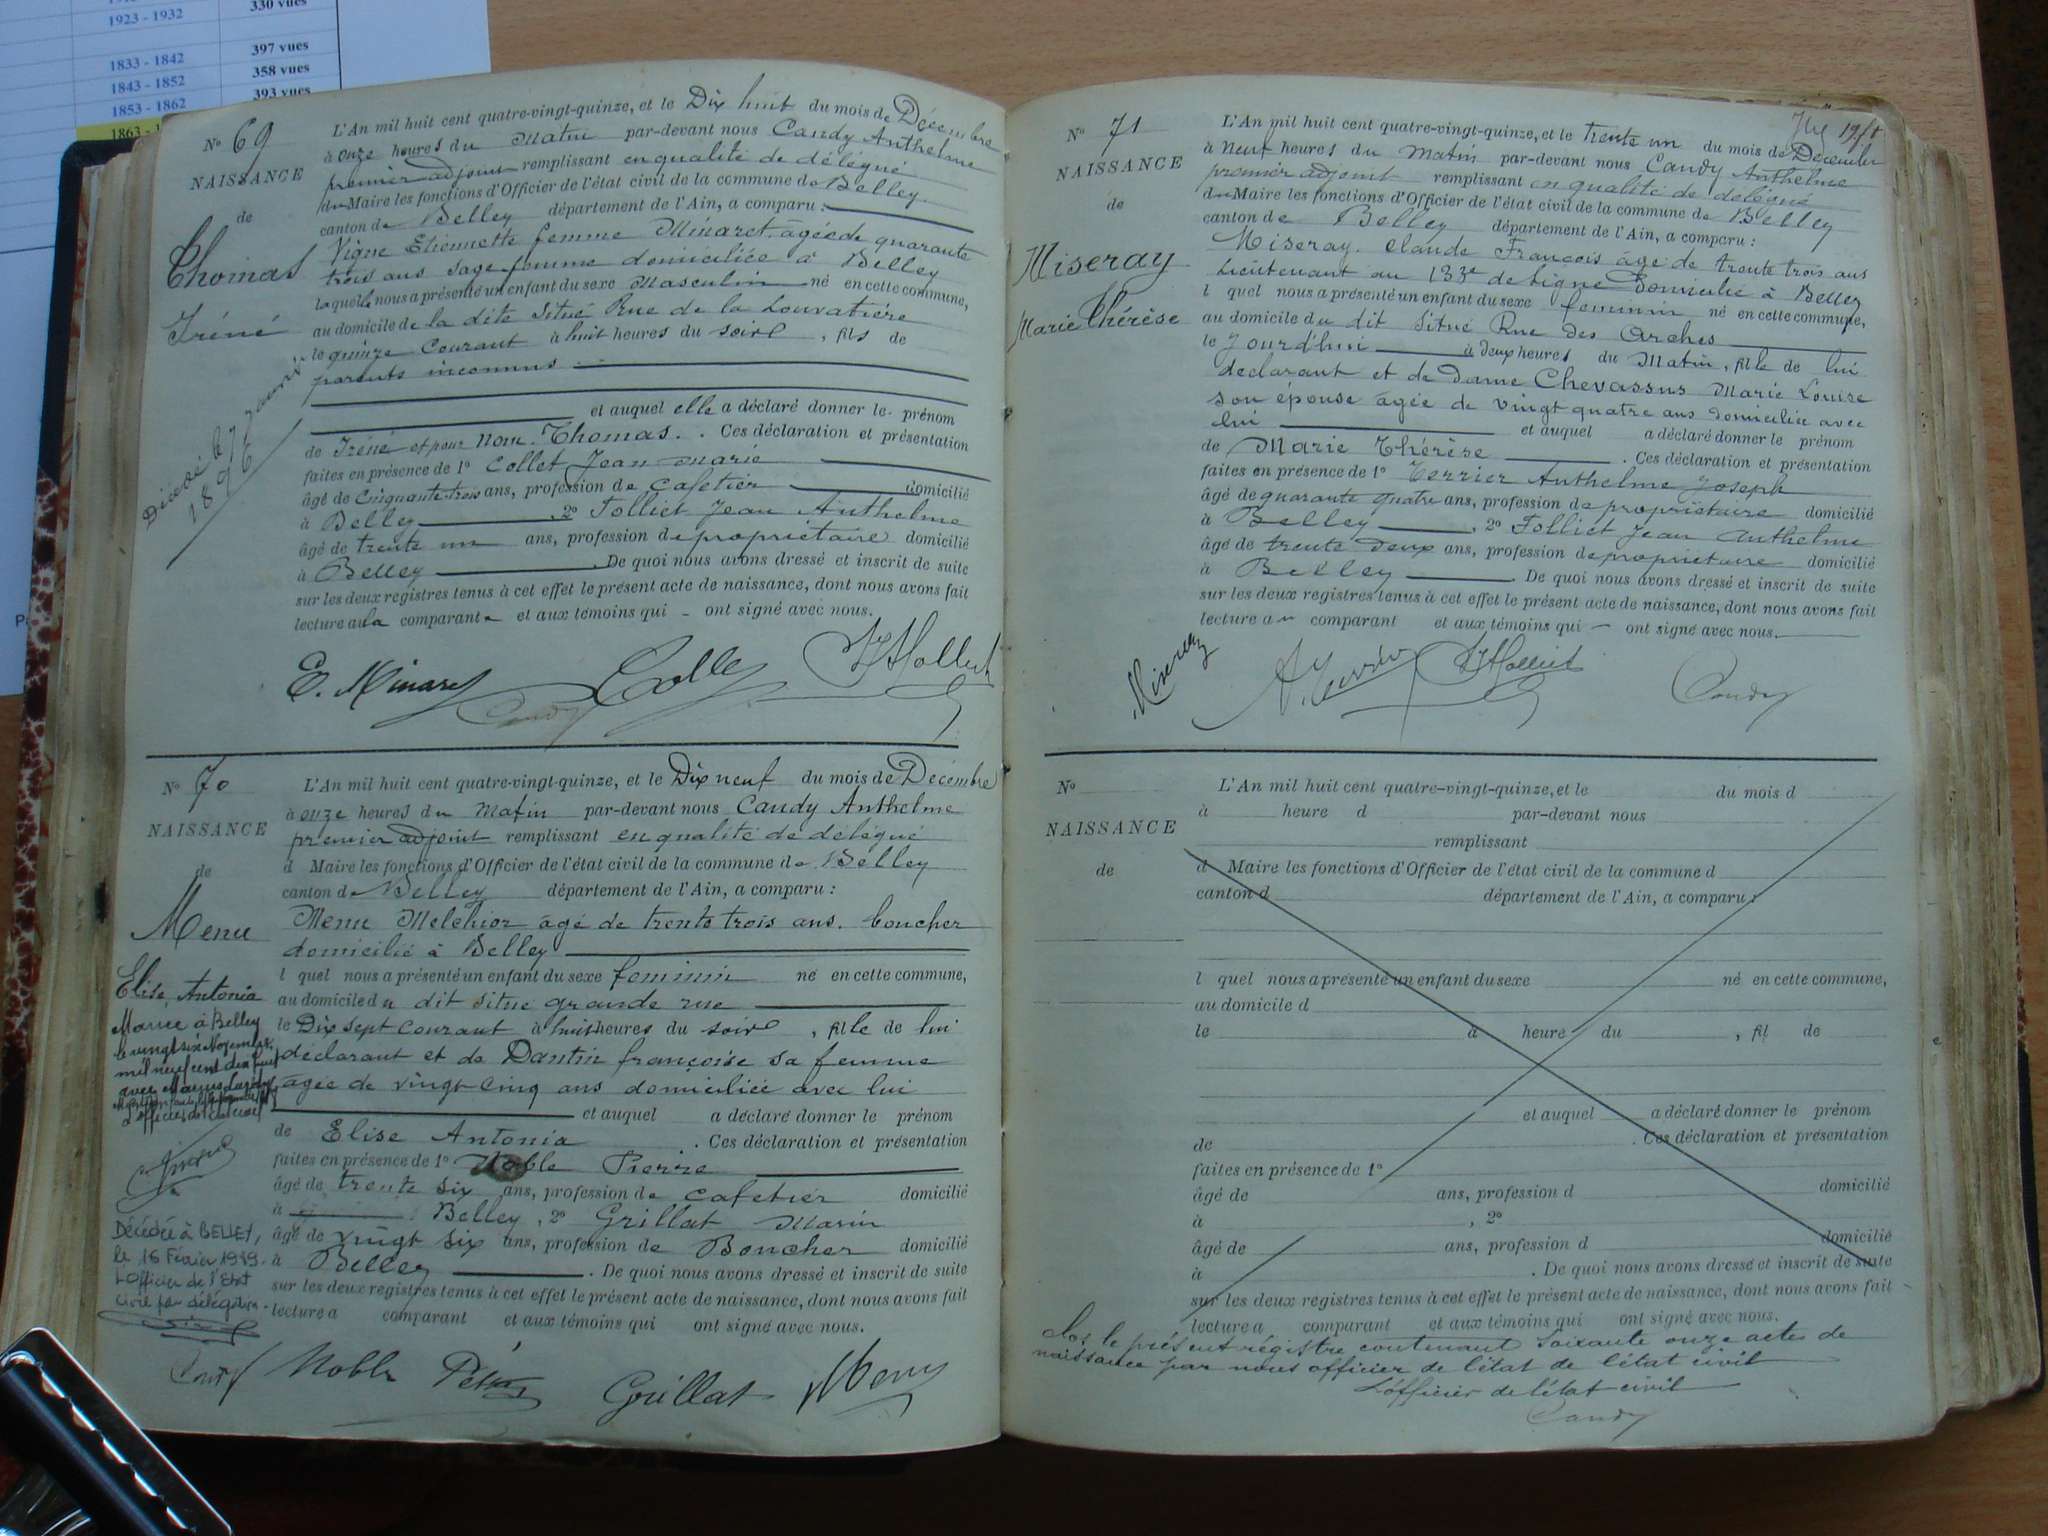 1923 - 1932
330 vues
1833 - 1842
397 vues
1843 - 1852
358 vues
1853 - 1862
393 vues
1863 -
No 69
NAISSANCE
de
Thomas
Iréné
Décédé le 7 janvier
1896
L'An mil huit cent quatre-vingt-quinze, et le Dix huit du mois de Décembre
à onze heures du Matin par-devant nous Candy Anthelme
premier adjoint remplissant en qualité de délégué
du Maire les fonctions d'Officier de l'état civil de la commune de Belley
canton de Belley département de l'Ain, a comparu :
Vigne Etiennette femme Minaret âgée de quarante
trois ans sage femme domiciliée à Belley
laquelle nous a présenté un enfant du sexe Masculin né en cette commune,
au domicile de la dite Situé Rue de la Louvatière
le quinze Courant à huit heures du soire, fils de
parents inconnus
et auquel elle a déclaré donner le prénom
de Iréné et pour Nom Thomas. . Ces déclaration et présentation
faites en présence de 1o Collet Jean Marie
âgé de Cinquante trois ans, profession de Cafetier domicilié
à Belley, 2o Folliet Jean Anthelme
âgé de trente un ans, profession de propriétaire domicilié
à Belley. De quoi nous avons dressé et inscrit de suite
sur les deux registres tenus à cet effet le présent acte de naissance, dont nous avons fait
lecture au la comparante et aux témoins qui ont signé avec nous.
E. Minaret Collet Folliet
Candy
No 70
NAISSANCE
de
Menu
Elise Antonia
Mariée à Belley
le vingt six Novembre
mil neuf cent dix huit
avec
Décédée à BELLEY,
le 16 Février 1979.
L'Officier de l'Etat
Civil par délégation.
L'An mil huit cent quatre-vingt-quinze, et le Dix neuf du mois de Décembre
à onze heures du Matin par-devant nous Candy Anthelme
premier adjoint remplissant en qualité de délégué
d Maire les fonctions d'Officier de l'état civil de la commune de Belley
canton de Belley département de l'Ain, a comparu :
Menu Melchior âgé de trente trois ans. boucher
domicilié à Belley
l quel nous a présenté un enfant du sexe feminin né en cette commune,
au domicile du dit situé grande rue
le Dix sept Courant à huit heures du soire, fille de lui
déclarant et de Dantin françoise sa femme
âgée de vingt-cinq ans domiciliée avec lui
et auquel a déclaré donner le prénom
de Elise Antonia . Ces déclaration et présentation
faites en présence de 1o Noble Pierre
âgé de trente six ans, profession de cafetier domicilié
à Belley, 2o Grillat Marin
âgé de vingt six ans, profession de Boucher domicilié
à Belley. De quoi nous avons dressé et inscrit de suite
sur les deux registres tenus à cet effet le présent acte de naissance, dont nous avons fait
lecture a comparant et aux témoins qui ont signé avec nous.
Candy Noble Grillat Menu
No 71
NAISSANCE
de
Miseray
Marie Thérèse
L'An mil huit cent quatre-vingt-quinze, et le trente un du mois de Décembre
à Neuf heures du Matin par-devant nous Candy Anthelme
premier adjoint remplissant en qualité de délégué
du Maire les fonctions d'Officier de l'état civil de la commune de Belley
canton de Belley département de l'Ain, a comparu :
Miseray. Claude François âgé de trente trois ans
Lieutenant au 133e de ligne Domicilié à Belley
l quel nous a présenté un enfant du sexe feminin né en cette commune,
au domicile du dit Situé Rue des Arches
le Jourd'hui à deux heures du Matin, fille de lui
déclarant et de Dame Chevassus Marie Louise
son épouse âgée de vingt quatre ans domiciliée avec
lui et auquel a déclaré donner le prénom
de Marie Thérèse. Ces déclaration et présentation
faites en présence de 1o Terrier Anthelme Joseph
âgé de quarante quatre ans, profession de propriétaire domicilié
à Belley, 2o Folliet Jean Anthelme
âgé de trente deux ans, profession de propriétaire domicilié
à Belley. De quoi nous avons dressé et inscrit de suite
sur les deux registres tenus à cet effet le présent acte de naissance, dont nous avons fait
lecture au comparant et aux témoins qui ont signé avec nous.
Miseray A. Terrier Folliet Candy
No
NAISSANCE
de
L'An mil huit cent quatre-vingt-quinze, et le du mois d
à heure d par-devant nous
remplissant
d Maire les fonctions d'Officier de l'état civil de la commune d
canton d département de l'Ain, a comparu :
l quel nous a présenté un enfant du sexe né en cette commune,
au domicile d
le à heure du , fil de
et auquel a déclaré donner le prénom
de . Ces déclaration et présentation
faites en présence de 1o
âgé de ans, profession d domicilié
à , 2o
âgé de ans, profession d domicilié
à . De quoi nous avons dressé et inscrit de suite
sur les deux registres tenus à cet effet le présent acte de naissance, dont nous avons fait
lecture a comparant et aux témoins qui ont signé avec nous.
Clos le présent régistre contenant soixante onze actes de
naissance par nous officier de l'état de l'état civil
L'officier de l'état civil
Candy